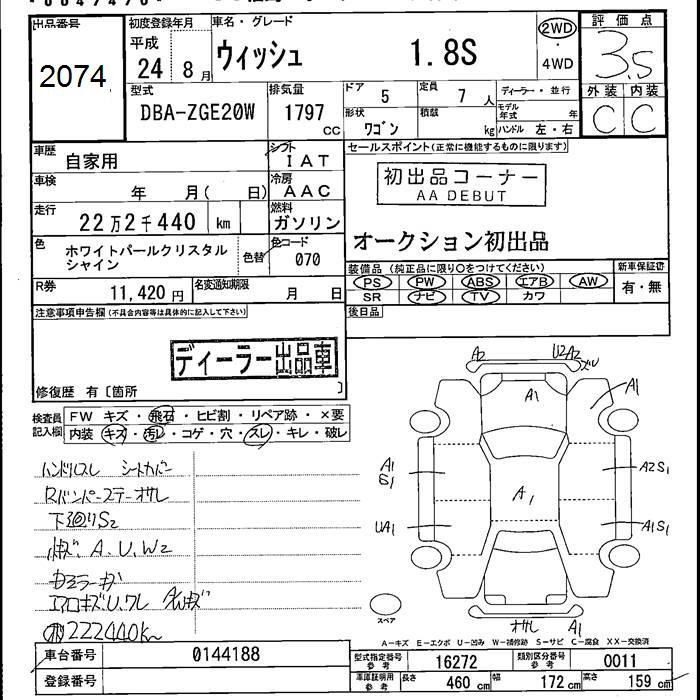 出品番号
2074
初度登録年月
平成
24 8月
車名・グレード
ウィッシュ 1.8S
2WD
・
4WD
評価点
3.5
外装 内装
C C
型式
DBA-ZGE20W
排気量
1797
CC
ドア 5
定員 7 人
形状 ワゴン
積載 kg
ディーラー・並行
モデル年式 年
ハンドル 左・右
車歴 自家用
シフト
IAT
車検 年 月( 日)
冷房
AAC
走行 22万2千440 km
燃料
ガソリン
色 ホワイトパールクリスタル
シャイン
色替
色コード
070
R券 11,420円
名変通知期限
月 日
セールスポイント(正常に機能するものに限ります)
初出品コーナー
AA DEBUT
オークション初出品
装備品 (純正品に限り○をつけてください)
新車保証書
PS PW ABS エアB AW
有・無
SR ナビ TV カワ
後日品
注意事項申告欄(不具合内容等は具体的に記入して下さい)
ディーラー出品車
修復歴 有〔箇所 〕
検査員
記入欄
FW キズ・飛石・ヒビ割・リペア跡・×要
内装 キズ・汚レ・コゲ・穴・スレ・キレ・破レ
ハンドルスレ シートカバー
Rバンパーステーオサレ
下廻りS2
A.U.W2
エアロキズU.ワレ AWキズ
222440km
A2 U2A2
A1
A1
A1
B1
A2S1
A1
UA1
A1S1
スペア
オサレ A1
A-キズ E-エクボ U-凹み W-補修跡 S-サビ C-腐食 XX-交換済
車台番号 0144188
登録番号
型式指定番号
参考
16272
類別区分番号
参考
0011
車庫証明用
参考
長さ 460 cm
幅 172 cm
高さ 159 cm